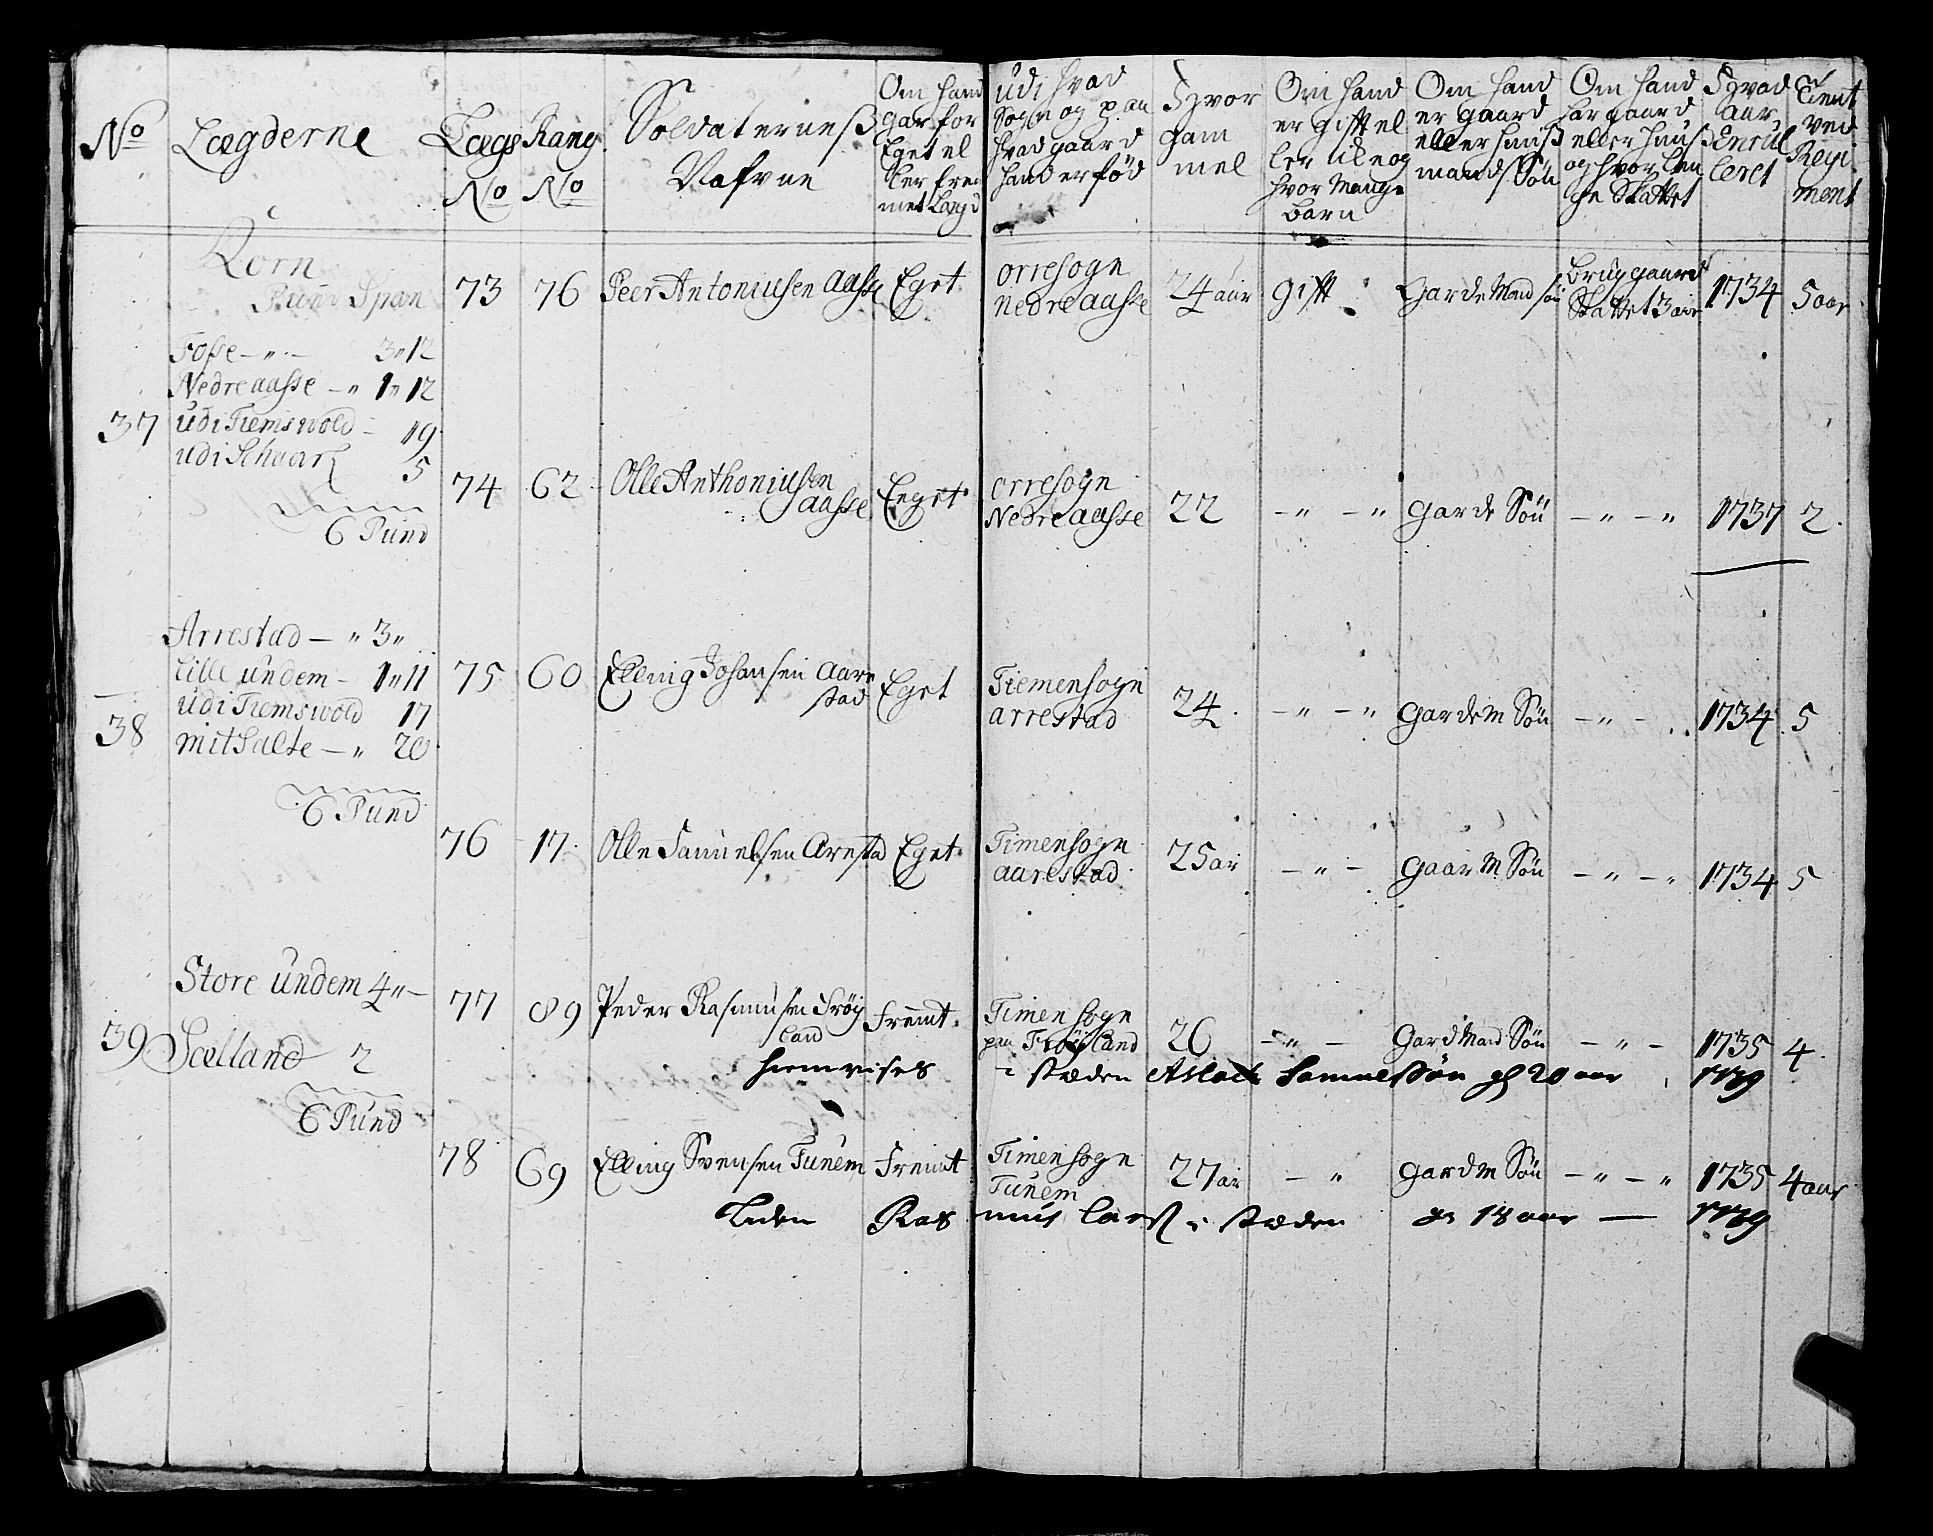 No
Lægderne
Lægs
No
Rang
No
Soldaterneß
Nafvne
Om hand
gar for
Eget el
ler frem
met Lægd
udi hvad
Sogn og paa
hvad gaard
hand er fød
Hvor
gam
mel
Om hand
er gift el
ler
hvor Mange
barn
Om hand
er gaard
eller huuß
mands Søn
Om hand
har gaard
eller huus
og hvor Len
ge Skattet
Hvad
aar
Enrul
leret
Tient
ved
Regi
ment
Korn
Pund Span
37
Fosse - " - 3 " 12
Nedre aasse - " 1 " 12
udi Tiemswold - 19
udi Schaar 5
6 Pund
73 76 Peer Antoniusen aasse Eget
orresogn
Nedre aasse
24 aar gift Garde Mand søn
brug gaard
Skattet 3 air
1734 5 aar
74 62 Olle Anthoniusen
aasse
Eeget
orresogn
Nedre aasse
22 - " - " garde Søn - " - " 1737 2.
38
Arrestad - " 3 "
Lille undem - 1 " 11
udi Tiemswold 17
mitsalte - " 20
6 Pund
75 60 Elling Johansen aare
stad
Eget
Tiemensogn
arrestad
24. - " - " gardem Søn - " - 1734. 5
76 17. Olle Samuelsen Arestad Eget
Timensogn
aarestad
25 ar - " - gaar M Søn - " - " 1734 5
39
Store undem 4 " -
Sælland 2
6 Pund
77 89 Peder Rasmusen Frøy
land
fremt.
Timensogn
paa Frøyland
26 - " - Gard Mand Søn - " - 1735 4.
hiemvises i stæden Aslak Samuelssøn gl 20 aar 1739
78 69 Elling Svensen Tunem Fremt
Timensogn
Tunem
27 ar - " gardm Søn - " - " 1735 4 aar
Liden Rasmus Larß i stæden gl 18 aar — 1739